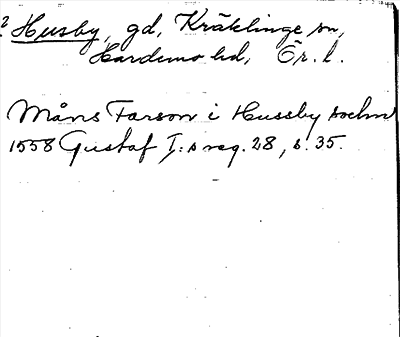 ? Husby, gd, Kräklinge sn,
Hardemo hd, Ör. l.
Måns Farson i Hussby sochn
1558 Gustaf I:s reg. 28, s. 35.